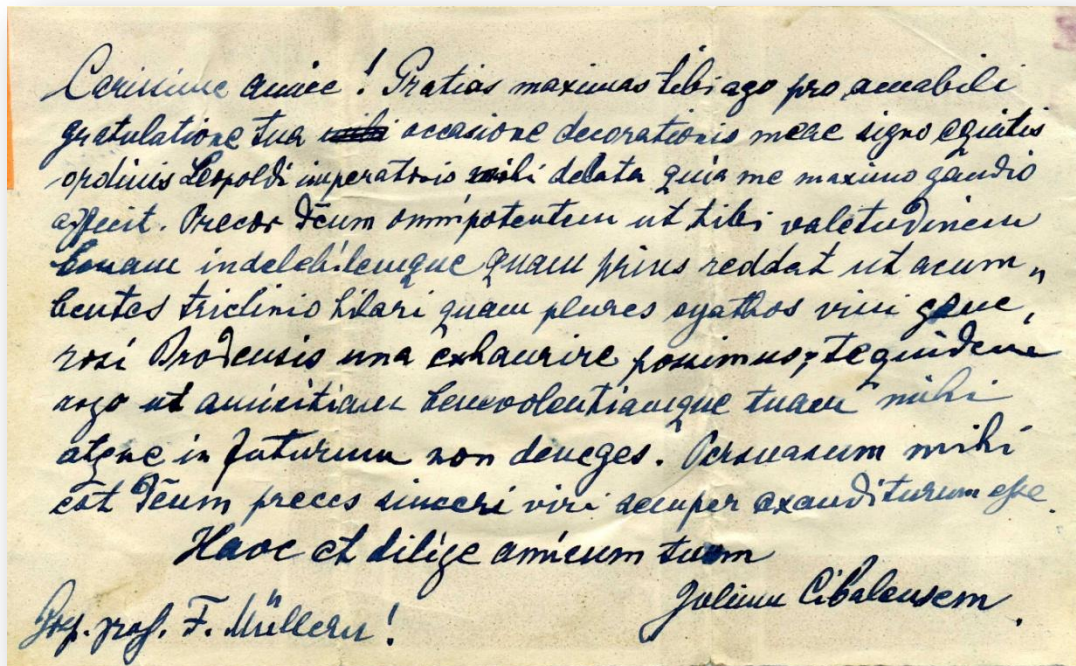 Carissime amice! Gratias maximas tibi ago pro amabili
gratulatione tua mihi occasione decorationis meae signo equitis
ordinis Leopoldi imperatoris mihi delata quia me maximo gaudio
affecit. Precor Deum omnipotentem ut tibi valetudinem
bonam indelebilemque quam prius reddat ut acum„
bentes triclinio hilari quam plures cyathos vini gene,
rosi Brodensis una exhaurire possimus; te quidem
rogo ut amicitiam benevolentiamque tuam mihi
atque in futurum non deneges. Persuasum mihi
est Deum preces sinceri viri semper exauditurum esse.
Have et dilige amicum tuum
Julium Cibalensem.
prof. F. Müllern!